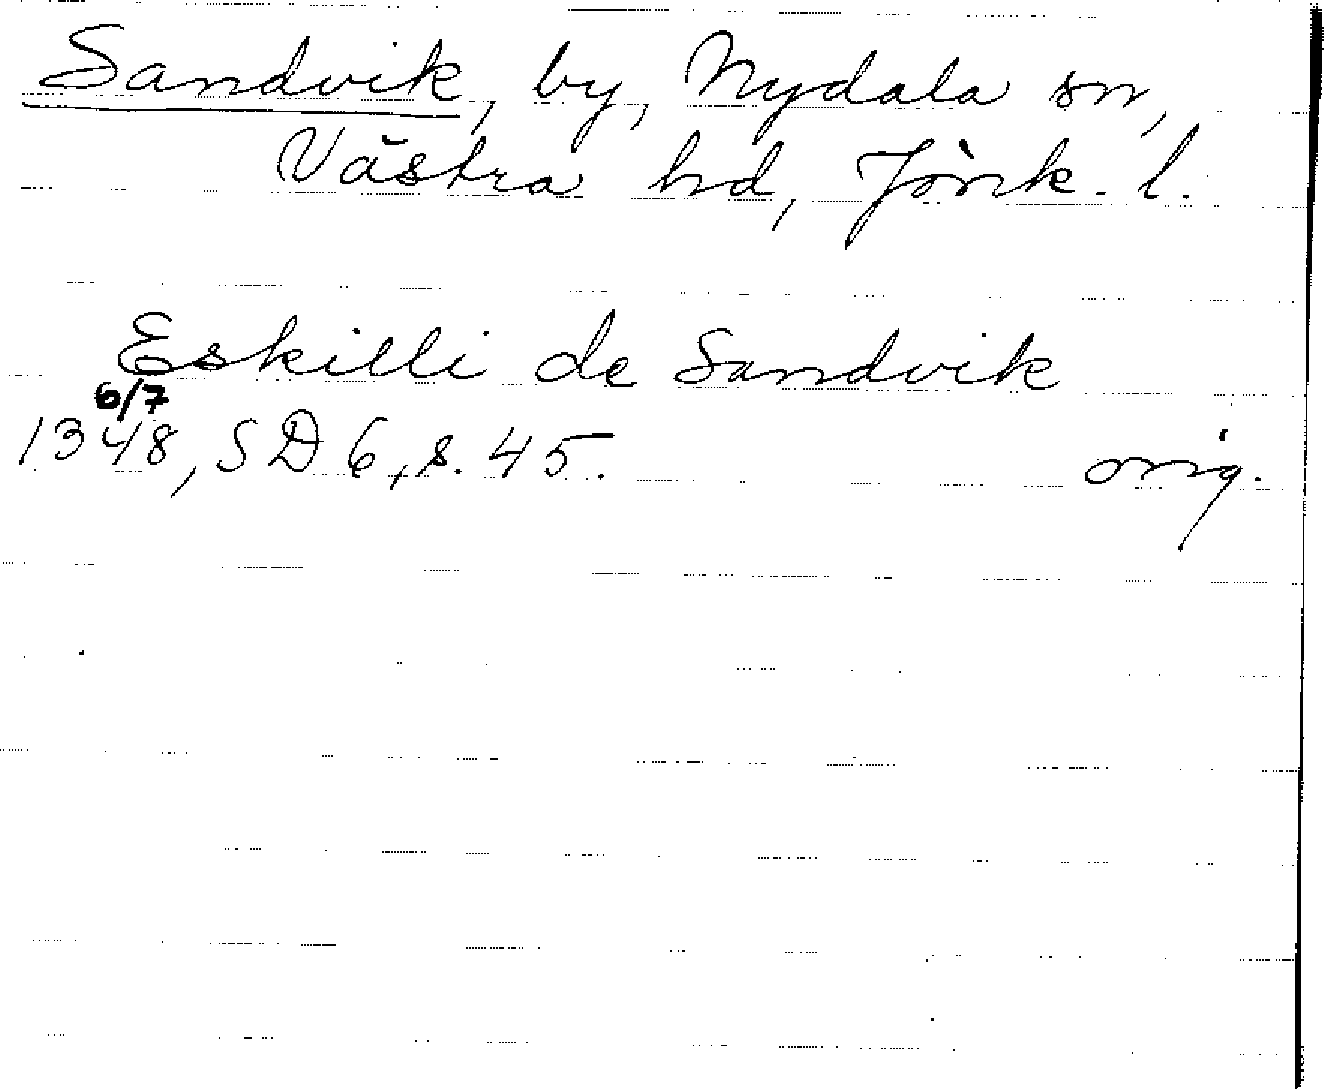 Sandvik, by, Nydala sn,
Västra hd, Jönk. l.
Eskilli de Sandvik
6/7
1348, SD 6, s. 45. orig.